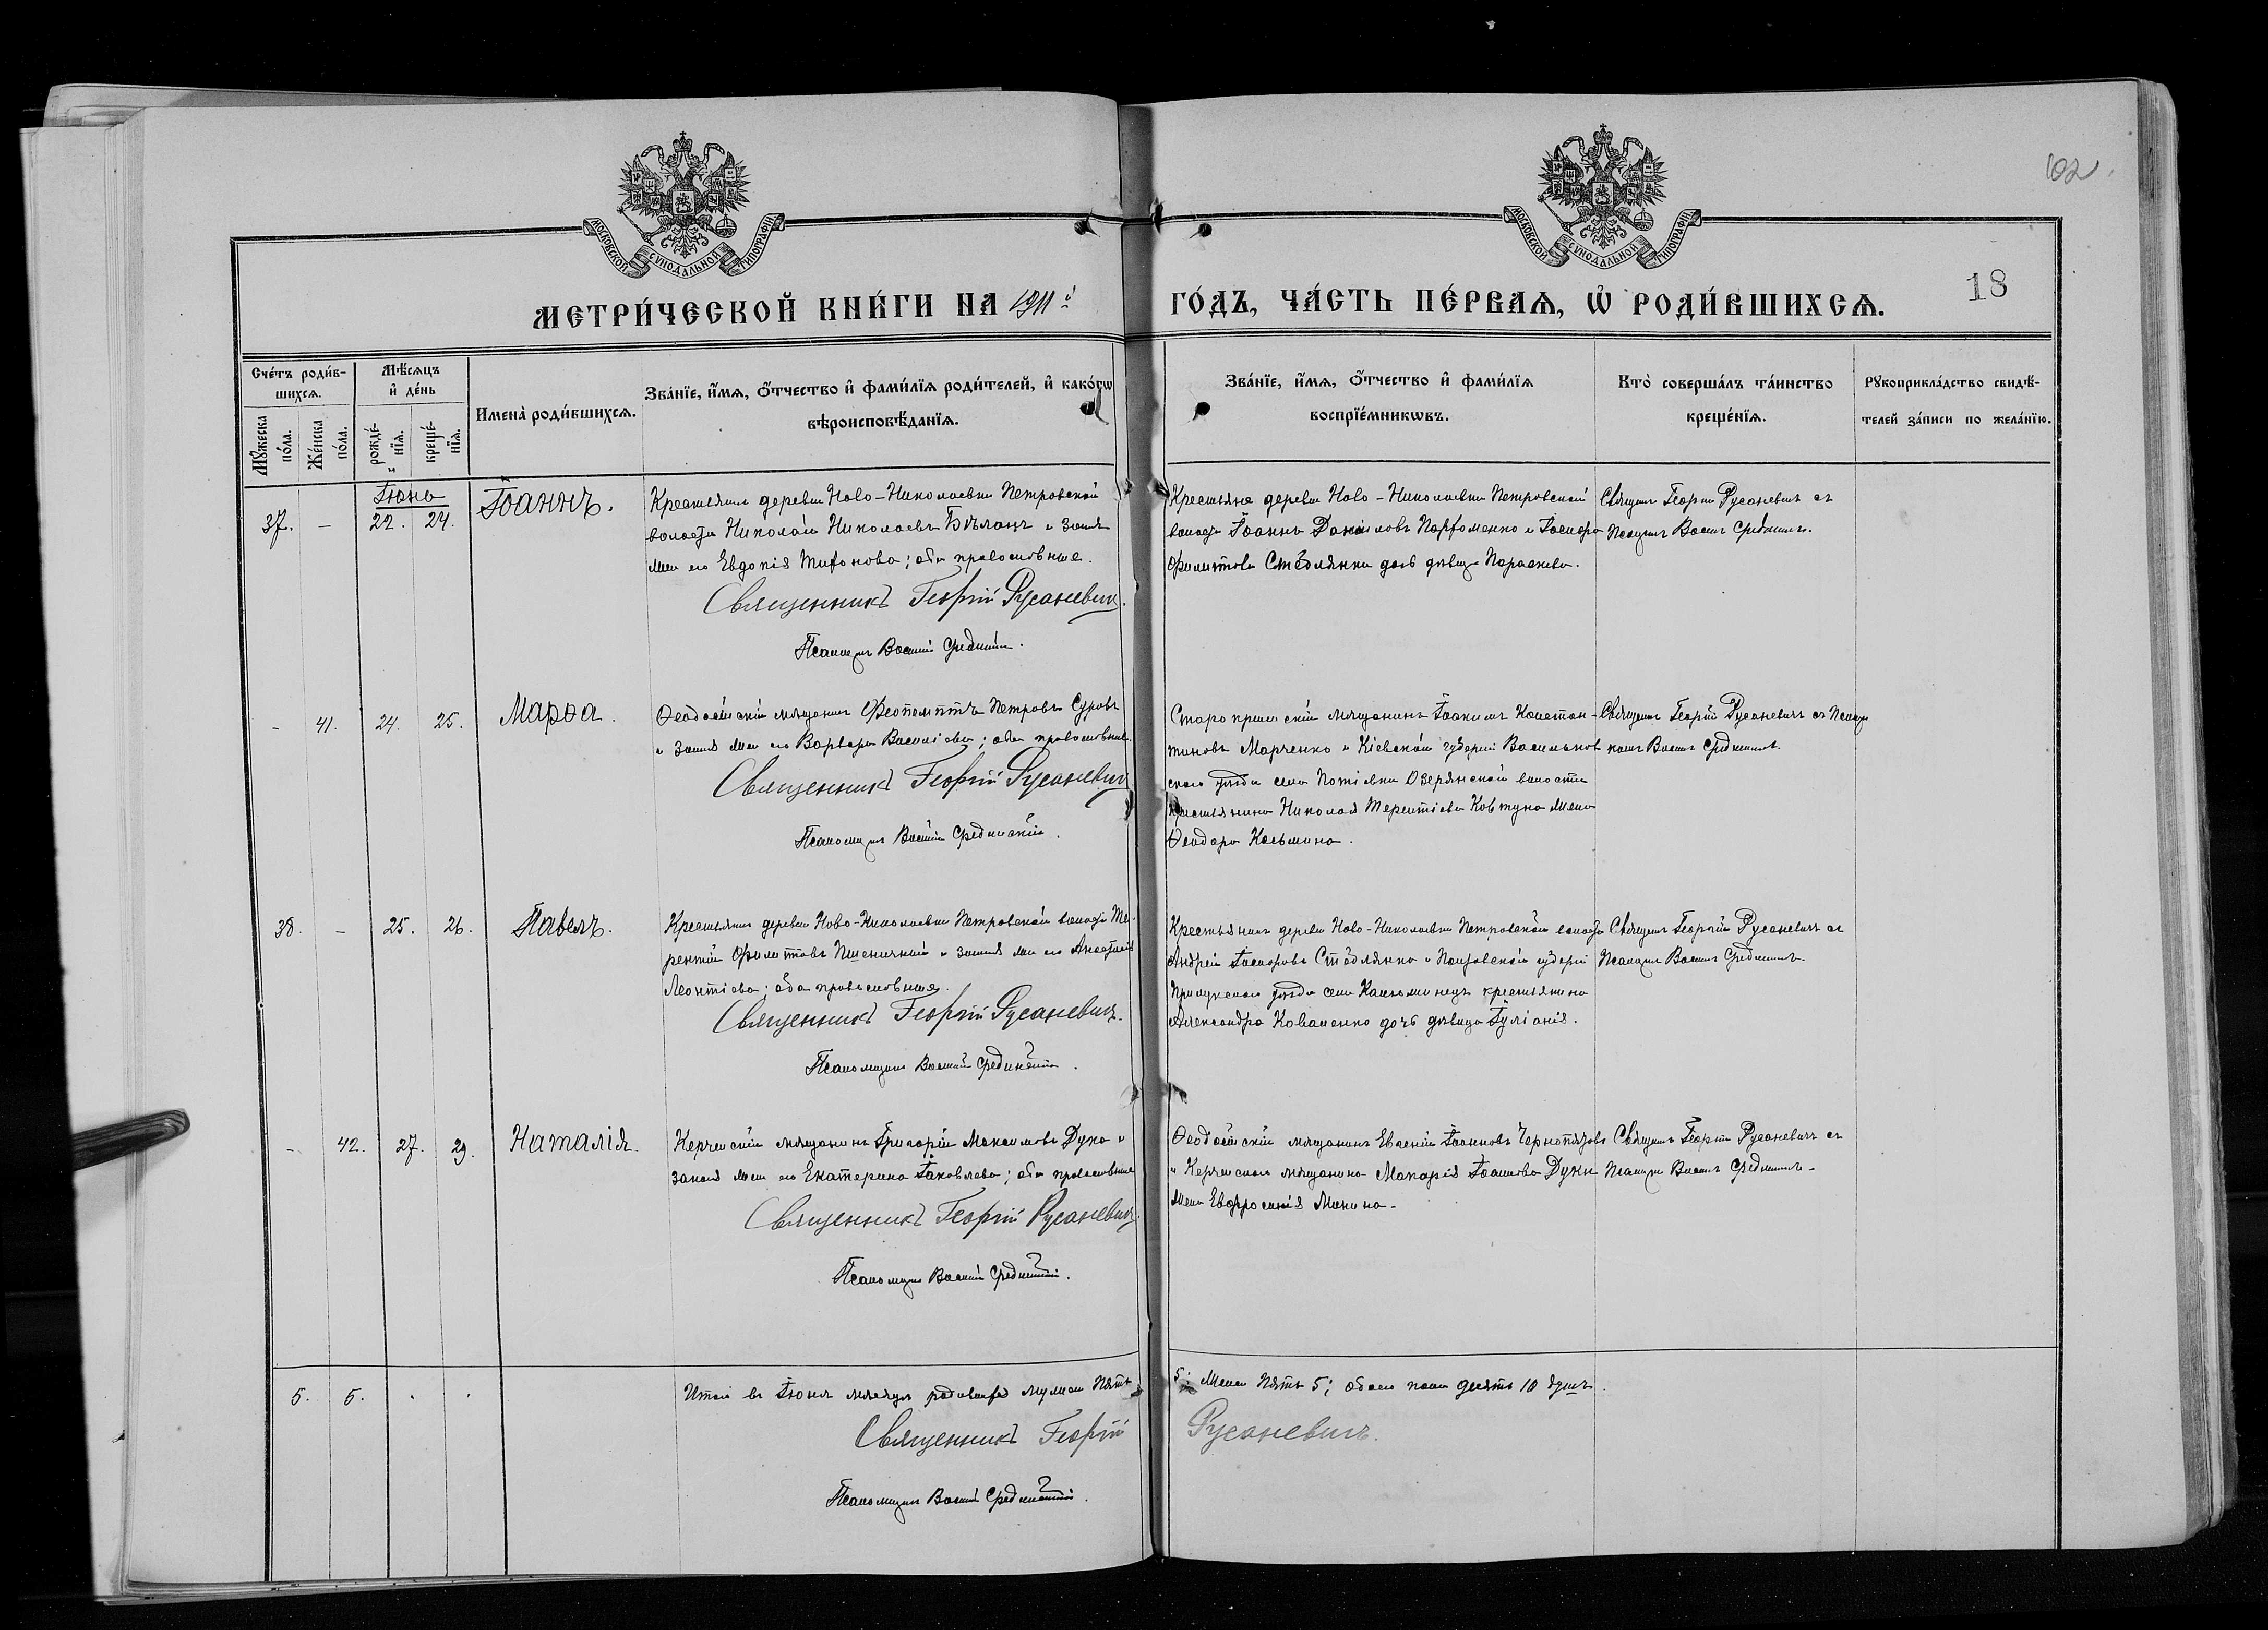 102.
МОСКОВСКОЙ СѴНОДАЛЬНОЙ ТИПОГРАФІИ
МОСКОВСКОЙ СѴНОДАЛЬНОЙ ТИПОГРАФІИ
18
МЕТРИ́ЧЕСКОЙ КНИ́ГИ НА 1911й ГО́ДЪ, ЧА́СТЬ ПЕ́РВАѦ, Ѽ РОДИ́ВШИХСѦ.
Сче́тъ роди́в-
шихсѧ.
Мꙋ́жеска по́ла.
Же́нска по́ла.
Мѣ́сѧцъ
и҆ де́нь
рожде́-
нїѧ.
креще́-
нїѧ.
Имена̀ роди́вшихсѧ.
Зва́нїе, и҆́мѧ, ѻ҆́тчество и҆ фами́лїѧ роди́телей, и҆ како́гѡ
вѣроисповѣ́данїѧ.
Зва́нїе, и҆́мѧ, ѻ҆́тчество и҆ фами́лїѧ
воспрїе́мникѡвъ.
Кто̀ соверша́лъ та́инство
креще́нїѧ.
Рꙋкоприкла́дство свидѣ́-
телей за́писи по жела́нїю.
Іюнь
37. – 22. 24.
Іоаннъ.
Крестьянинъ деревни Ново-Николаевки Петровской
волости Николай Николаевъ Бѣланъ и законъ
жена его Евдокія Тифонова; оба православные.
Священникъ Георгій Русаневичъ.
Псаломщикъ Василій
Крестьяне деревни Ново-Николаевки Петровской
волости Іоаннъ Даниловъ Парфоменко и
Филиппова Стодлянки дочь дѣвица Параскева.
Священ Георгій Русаневичъ съ
Псаломщ Васил
– 41. 24. 25.
Марѳа.
Ѳеодосійскій мѣщанинъ Ѳеопемптъ Петровъ Суровъ
и закон жена его Варвара Василіева; оба православные.
Священникъ Георгій Русаневичъ
Псаломщикъ Василій
Старокрымскій мѣщанинъ Іоакимъ Констан-
тиновъ Марченко и Кіевской губерніи Васильков
скаго уѣзда села Потіевки Озерянской волости
крестьянина Николая Терентіева Ковтуна жена
Ѳеодора Косьмина.
Священ Георгій Русаневичъ съ Псалом
щикомъ Васил
38. – 25. 26.
Павелъ.
Крестьянинъ деревни Ново-Николаевки Петровской волости Те-
рентій Филипповъ Пшеничный и закон жена его Анастасія
Леонтіева; оба православные.
Священникъ Георгій Русаневичъ.
Псаломщикъ Василій
Крестьянинъ деревни Ново-Николаевки Петровской волости
Андрей Стодлянко и Полтавской губерніи
Прилукскаго уѣзда села крестьянина
Александра Коваленко дочь дѣвица Іуліанія.
Священ Георгій Русаневичъ съ
Псаломщ Васил
– 42. 27. 29.
Наталія.
Керченскій мѣщанинъ Григорій Максимовъ Дука и
закон жена его Екатерина Іаковлева; оба православные
Священникъ Георгій Русаневичъ.
Псаломщикъ Василій
Ѳеодосійскій мѣщанинъ Евсеній Іоанновъ
и Керченскаго мѣщанина Макарія Дуки
жена Евфросинія Минина.
Священ Георгій Русаневичъ съ
Псаломщ Васил
5. 5.
Итого въ Іюнѣ мѣсяцѣ родившихся мужска Пять
5; женска Пять 5; обоего пола десять 10 душъ.
Священникъ Георгій Русаневичъ.
Псаломщикъ Василій